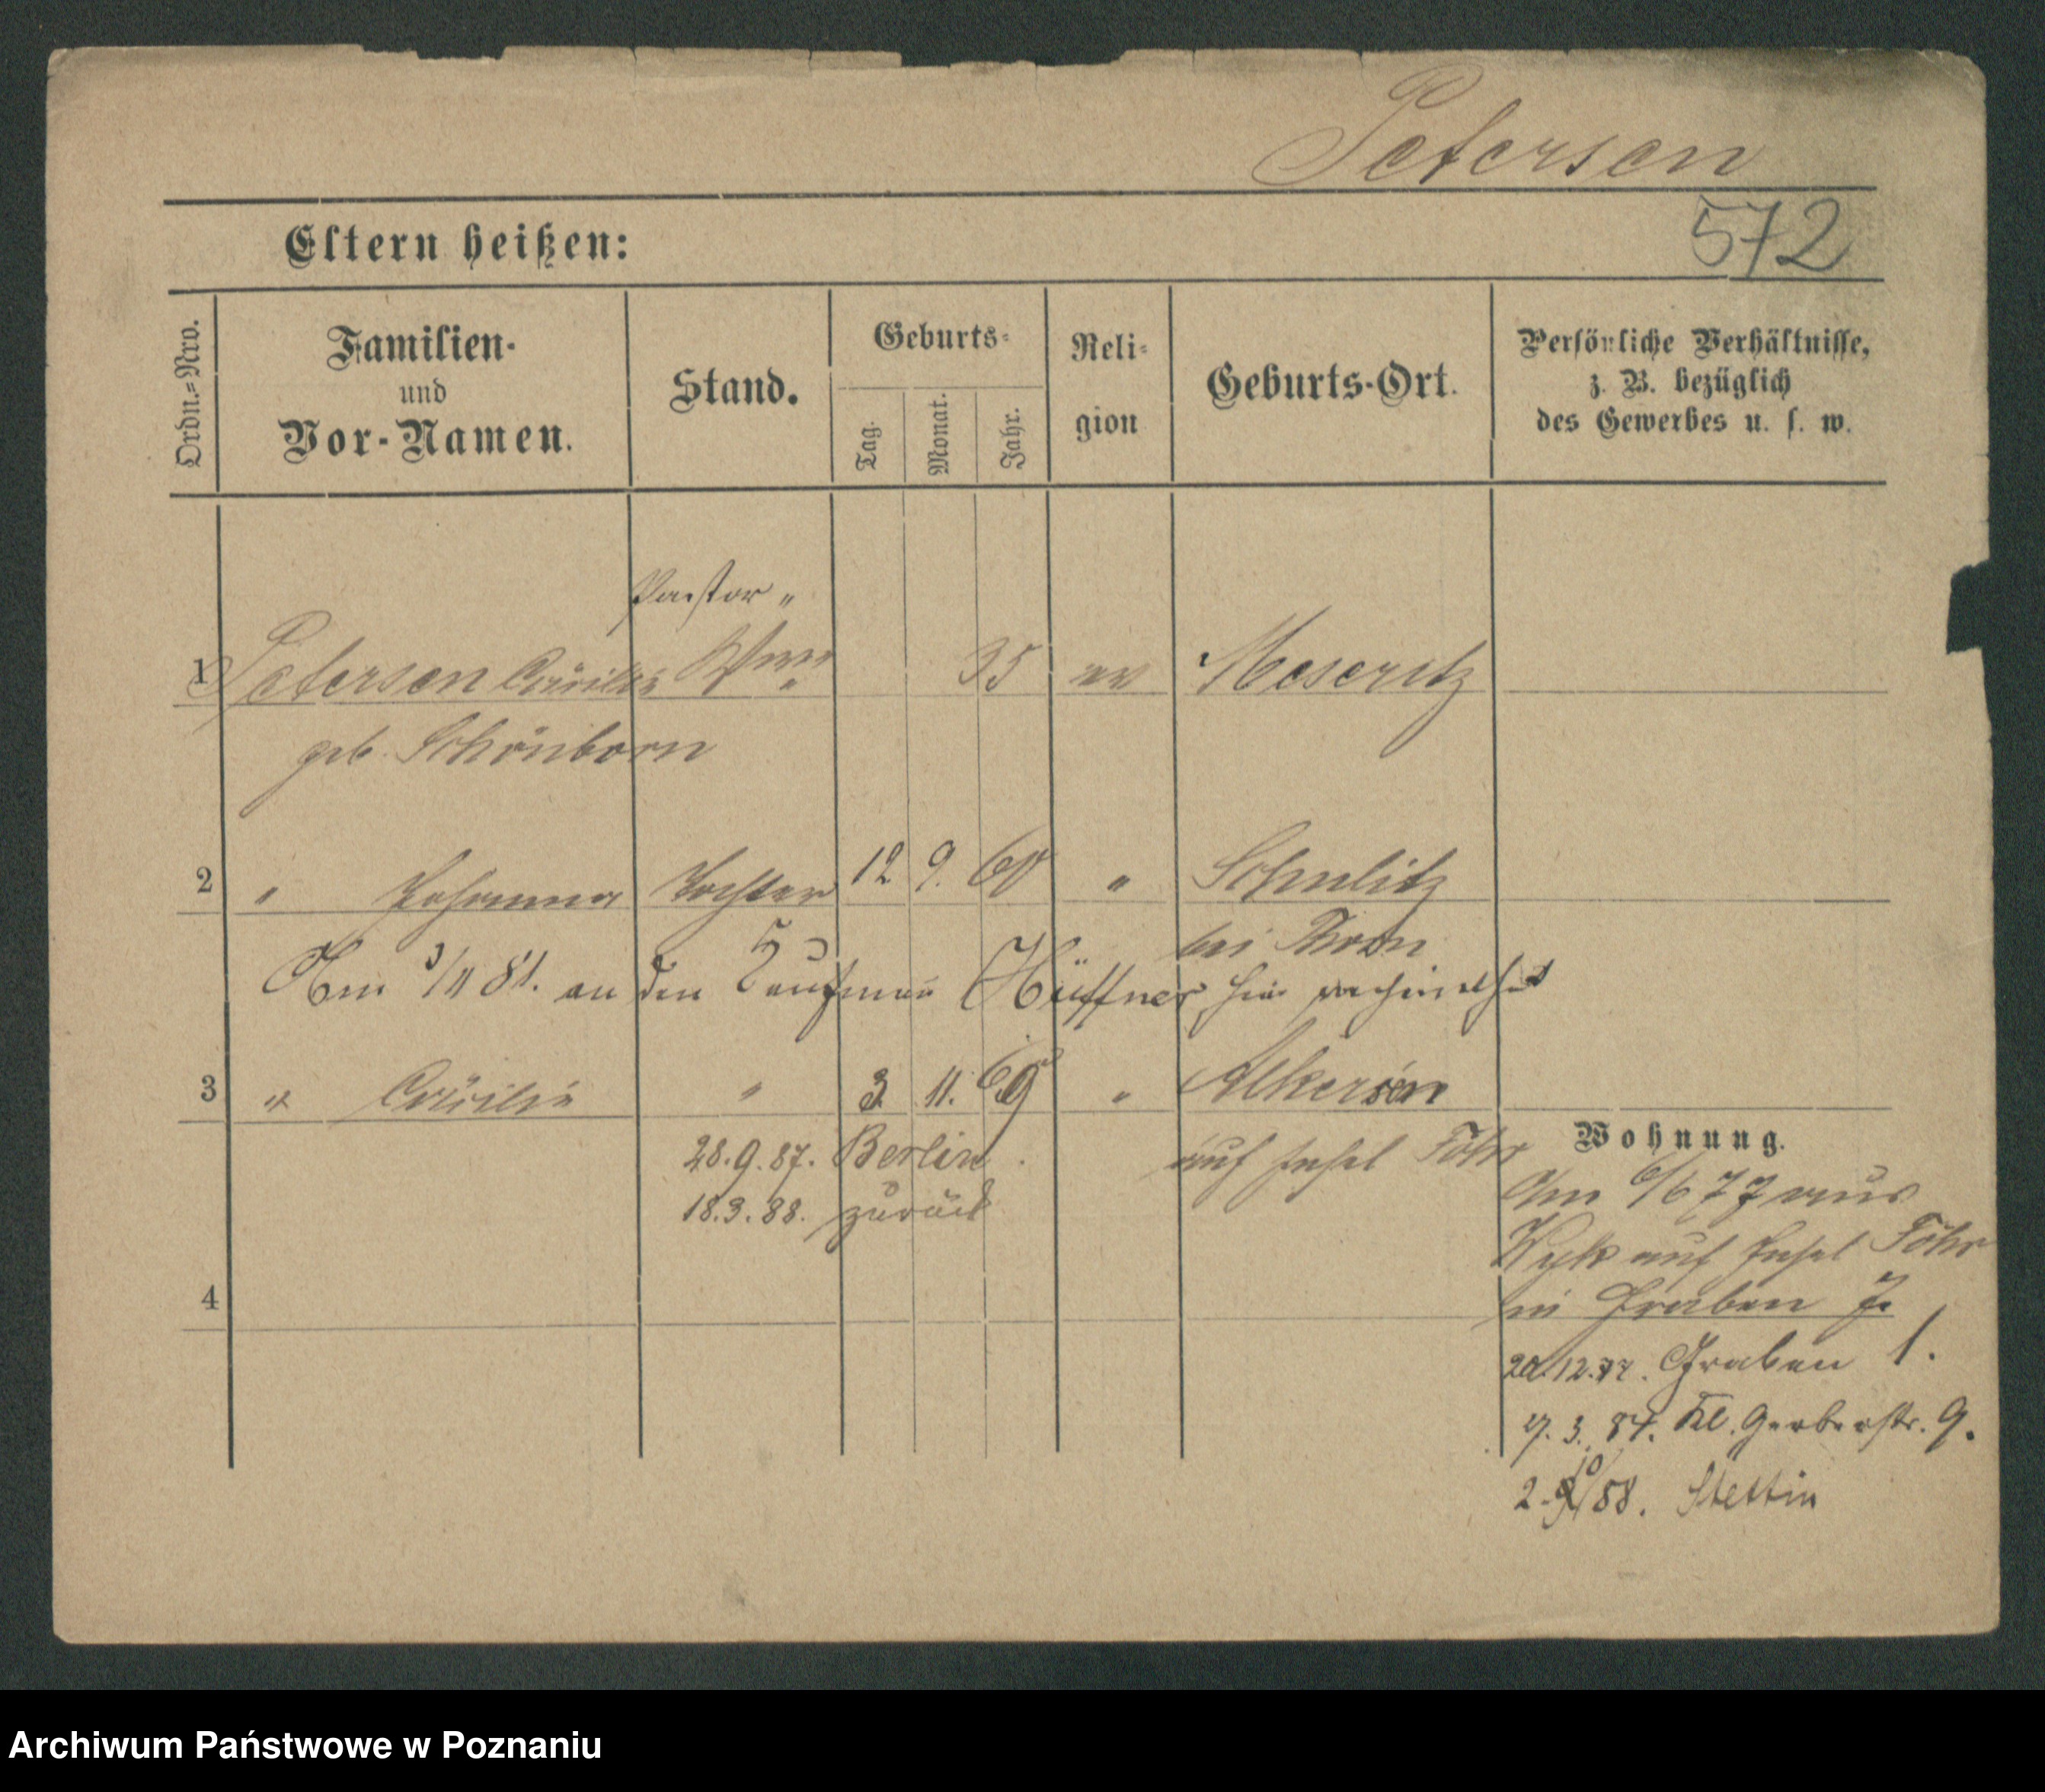 Petersen
572
Eltern heißen:
Ordn.=Nro.
Familien-
und
Vor-Namen.
Stand.
Geburts=
Tag.
Monat.
Jahr.
Reli=
gion
Geburts-Ort.
Persönliche Verhältnisse,
z. B. bezüglich
des Gewerbes u. s. w.
Pastor "
1 Petersen Cäcilie Wwe 35 ev Meseritz
geb. Schönborn
2 " Johanna Tochter 12 9. 60 " Schulitz
bei Thorn
Am 3/11 81. an den Kaufmann Hüffner hier verheirathet
3 " Cäcilie " 3 11. 69 " Alkersen
auf Insel Föhr
28.9.87. Berlin
18.3.88. zurück
4
Wohnung.
Am 6/6 77 aus
Wyk auf Insel Föhr
in Graben 7.
20.12.77. Graben 1.
3. 84. Kl. Gerberstr. 9.
2. 10/88. Stettin
Archiwum Państwowe w Poznaniu